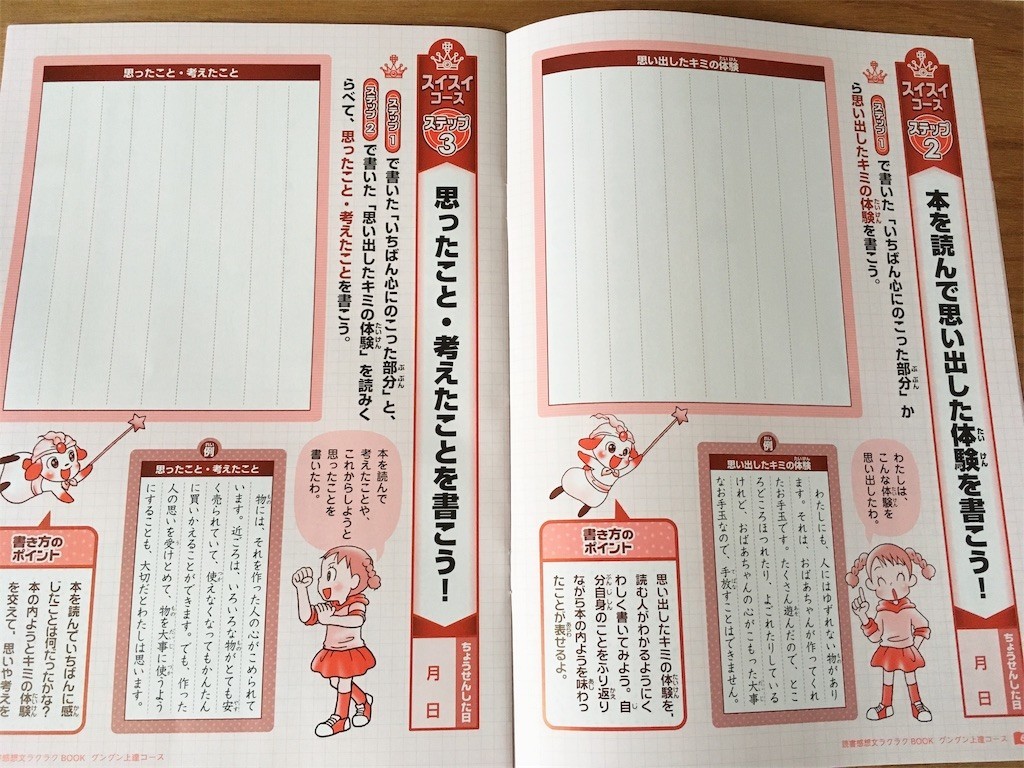 中
スイスイ
コース
ステップ
2
本を読んで思い出した体験を書こう！
ちょうせんした日
月 日
ステップ1で書いた「いちばん心にのこった部分」か
ら思い出したキミの体験を書こう。
思い出したキミの体験
わたしは、
こんな体験を
思い出したわ。
例
思い出したキミの体験
わたしにも、人にはゆずれない物があり
ます。それは、おばあちゃんが作ってくれ
たお手玉です。たくさん遊んだので、とこ
ろどころほつれたり、よごれたりしている
けれど、おばあちゃんの心がこもった大事
なお手玉なので、手放すことはできません。
書き方の
ポイント
思い出したキミの体験を、
読む人がわかるようにく
わしく書いてみよう。自
分自身のことをふり返り
ながら本の内ようを味わっ
たことが表せるよ。
読書感想文ラクラクBOOK グングン上達コース
中
スイスイ
コース
ステップ
3
思ったこと・考えたことを書こう！
ちょうせんした日
月 日
ステップ1で書いた「いちばん心にのこった部分」と、
ステップ2で書いた「思い出したキミの体験」を読みく
らべて、思ったこと・考えたことを書こう。
思ったこと・考えたこと
本を読んで
考えたことや、
これからしようと
思ったことを
書いたわ。
例
思ったこと・考えたこと
物には、それを作った人の心がこめられて
います。近ごろは、いろいろな物がとても安
く売られていて、使えなくなってもかんたん
に買いかえることができます。でも、作った
人の思いを受けとめて、物を大事に使うよう
にすることも、大切だとわたしは思います。
書き方の
ポイント
本を読んでいちばんに感
じたことは何だったかな？
本の内ようとキミの体験
を交えて、思いや考えを
感想文ラクラクBOOK グングン上達コース